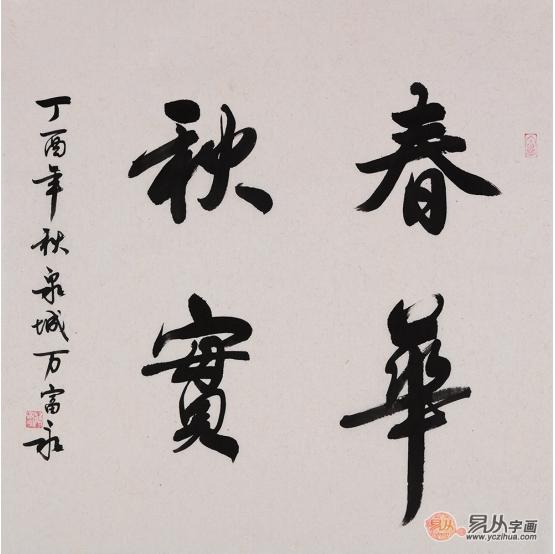 春華
秋實
丁酉年秋泉城万富永
易从字画
www.yczihua.com